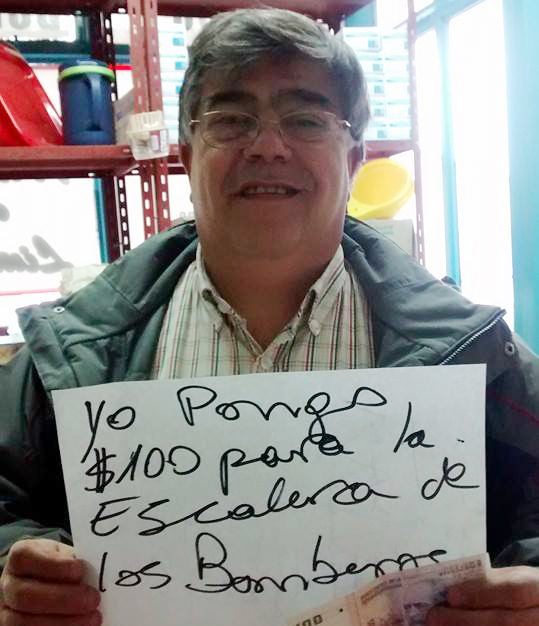 Yo Pongo
$100 para la
Escalera de
los Bomberos
100